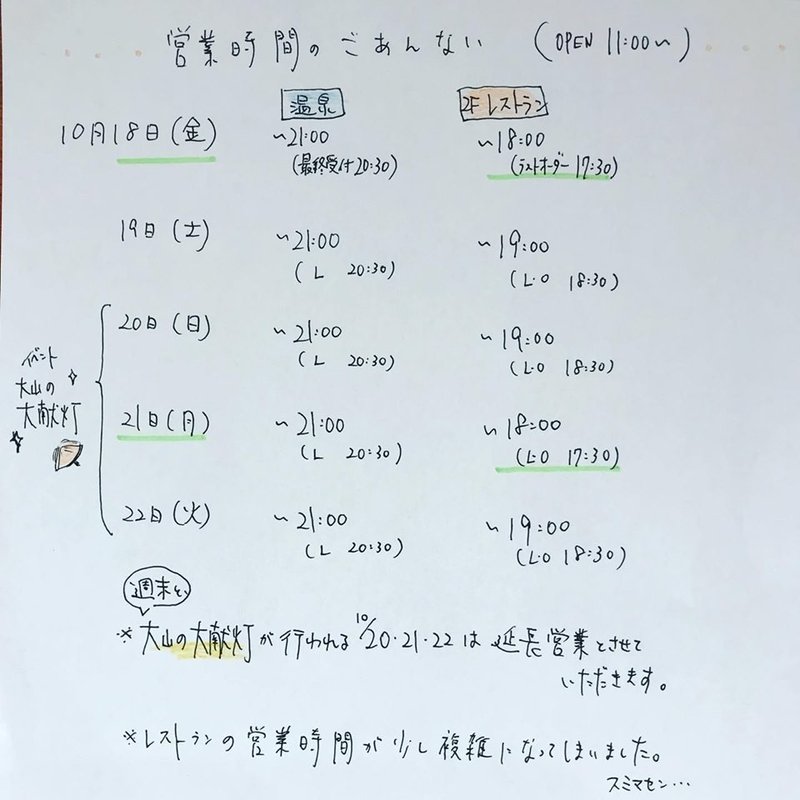 営業時間のごあんない (OPEN 11:00〜)
温泉 2F レストラン
10月18日(金) 〜21:00 〜18:00
(最終受付 20:30) (ラストオーダー 17:30)
19日(土) 〜21:00 〜19:00
(L 20:30) (L.O 18:30)
20日(日) 〜21:00 〜19:00
(L 20:30) (L.O 18:30)
イベント
大山の
大献灯
21日(月) 〜21:00 〜18:00
(L 20:30) (L.O 17:30)
22日(火) 〜21:00 〜19:00
(L 20:30) (L.O 18:30)
週末と、
※大山の大献灯が行われる10/20・21・22は延長営業とさせて
いただきます。
※レストランの営業時間が少し複雑になってしまいました。
スミマセン…